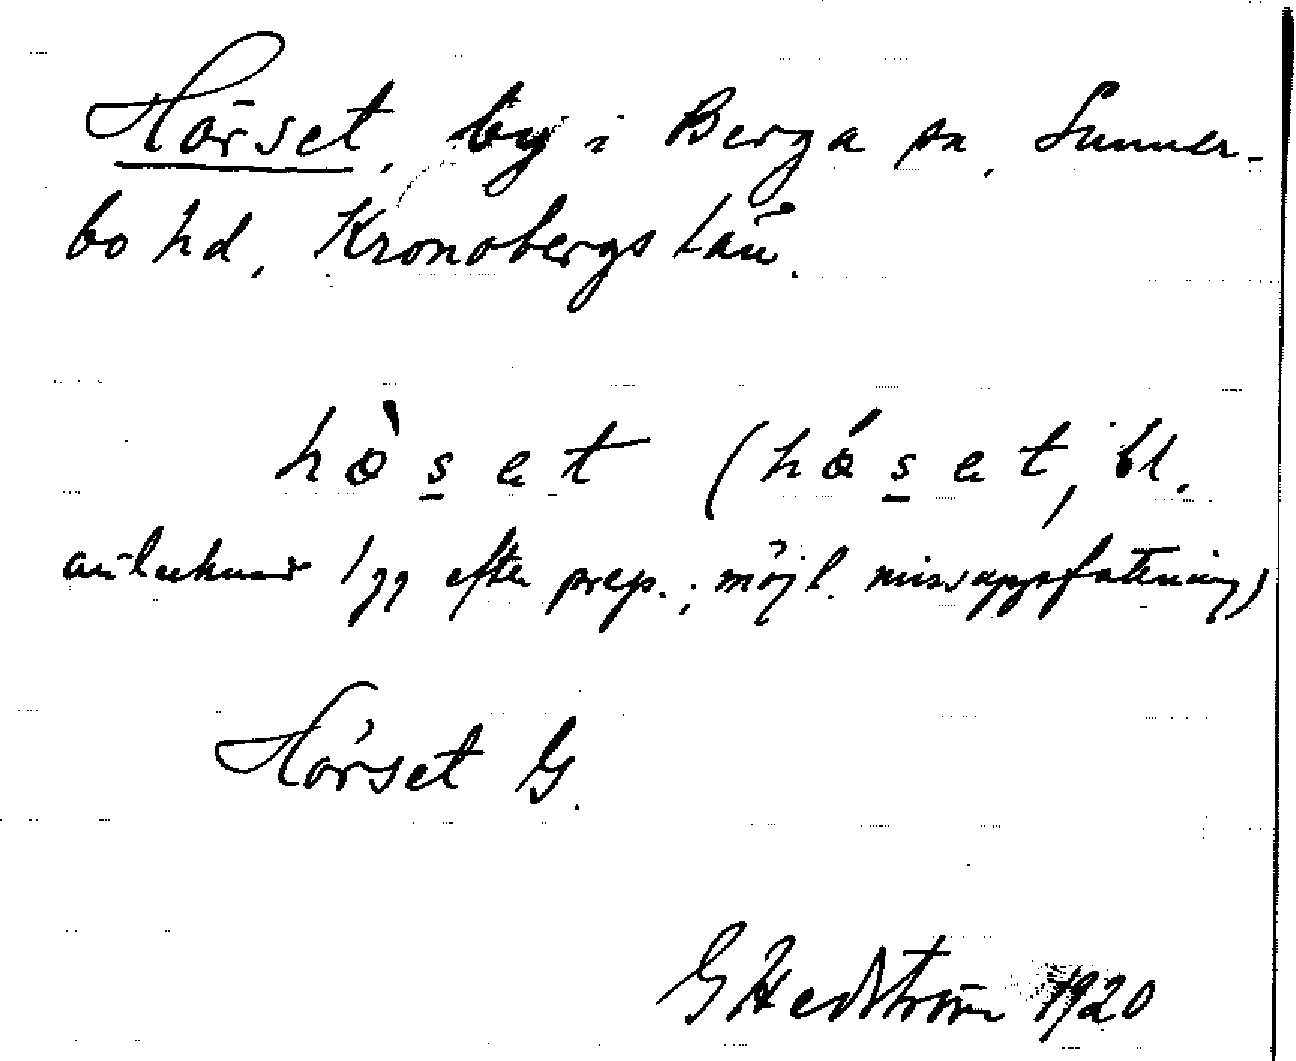 Hörset, by i Berga sn, Sunner-
bo hd, Kronobergs län.
hòset (hóset, bl.
antecknat 1 gg efter prep.; möjl. missuppfattning)
Hörset G.
G Hedström 1920